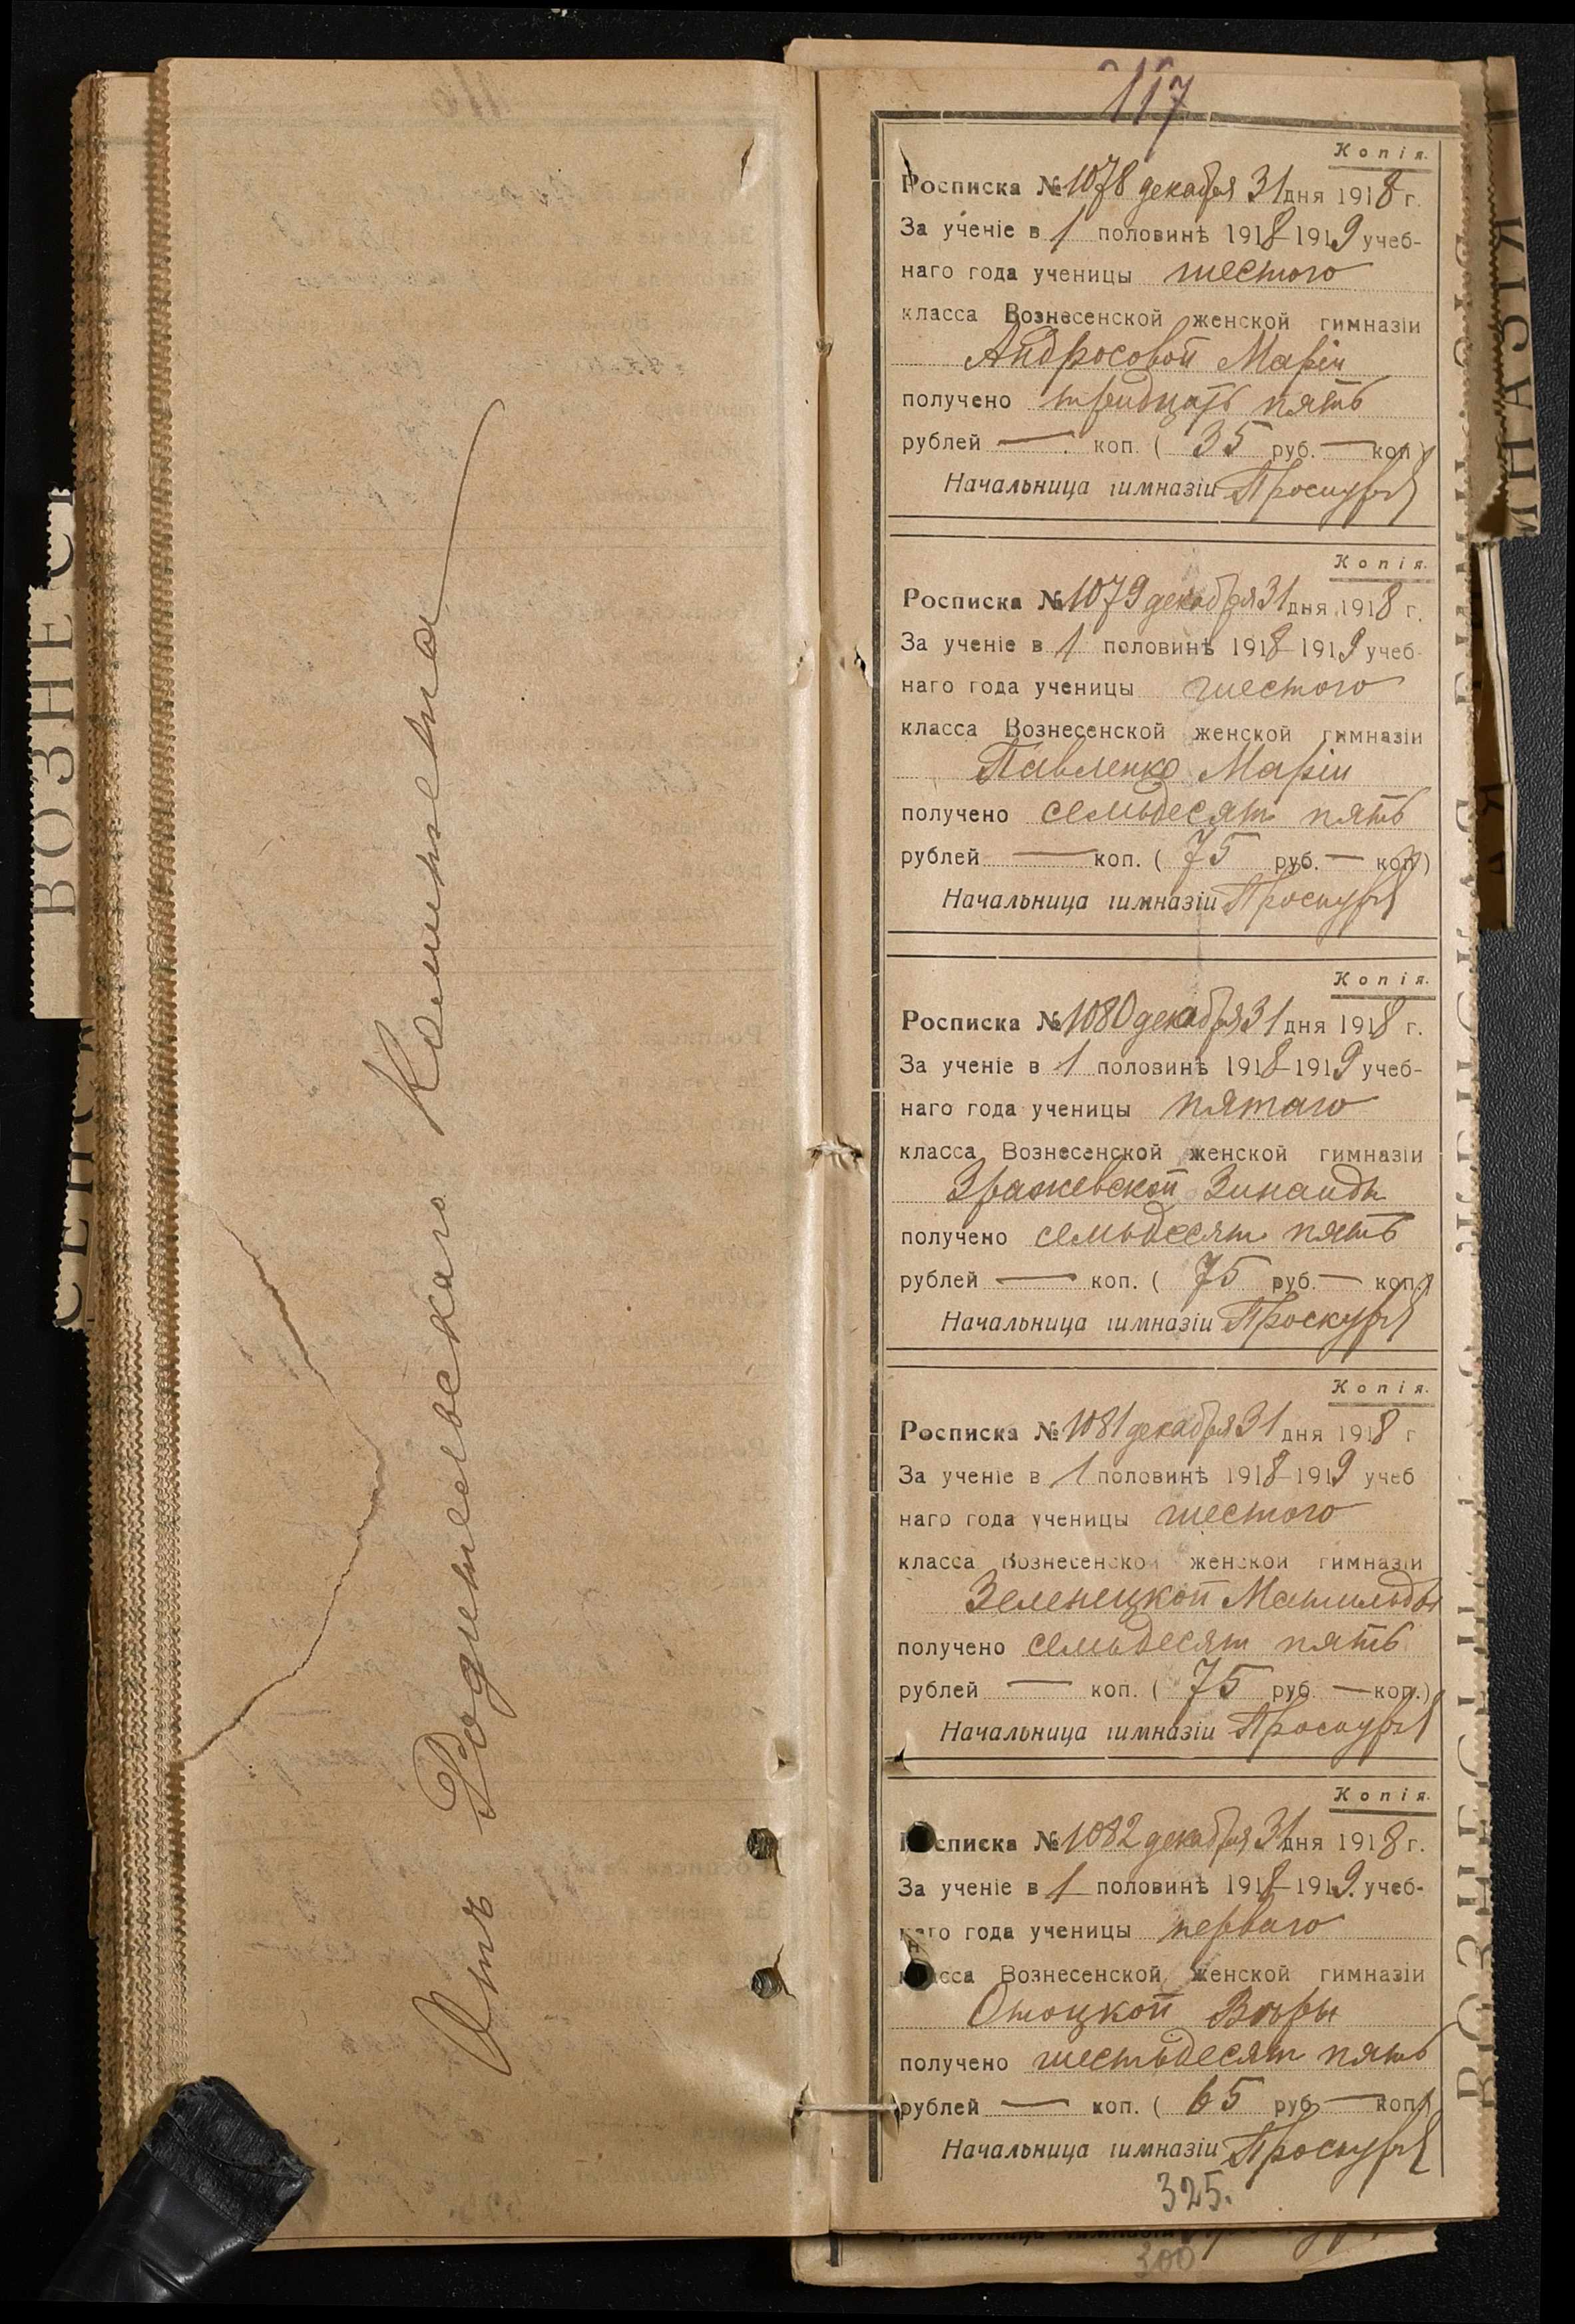 Отъ Родительскаго Комитета
117
Копія.
Росписка № 1078 декабря 31 дня 1918 г.
За ученіе в 1 половинѣ 1918-1919 учеб-
наго года ученицы шестого
класса Вознесенской женской гимназіи
Андросовой Маріи
получено тридцать пять
рублей — коп. ( 35 руб. — коп.)
Начальница гимназіи
Копія.
Росписка № 1079 декабря 31 дня 1918 г.
За ученіе в 1 половинѣ 1918-1919 учеб-
наго года ученицы шестого
класса Вознесенской женской гимназіи
Павленко Маріи
получено семьдесят пять
рублей — коп. ( 75 руб. — коп.)
Начальница гимназіи
Копія.
Росписка № 1080 декабря 31 дня 1918 г.
За ученіе в 1 половинѣ 1918-1919 учеб-
наго года ученицы пятаго
класса Вознесенской женской гимназіи
Зражевской Зинаиды
получено семьдесят пять
рублей — коп. ( 75 руб. — коп.)
Начальница гимназіи
Копія.
Росписка № 1081 декабря 31 дня 1918 г
За ученіе в 1 половинѣ 1918-1919 учеб
наго года ученицы шестого
класса Вознесенской женской гимназіи
Зеленецкой Матильды
получено семьдесят пять
рублей — коп. ( 75 руб. — коп.)
Начальница гимназіи
Копія.
Росписка № 1082 декабря 31 дня 1918 г.
За ученіе в 1 половинѣ 1918-1919. учеб-
наго года ученицы перваго
класса Вознесенской женской гимназіи
Отоцкой Вѣры
получено шестьдесят пять
рублей — коп. ( 65 руб. — коп.)
Начальница гимназіи
325.
300